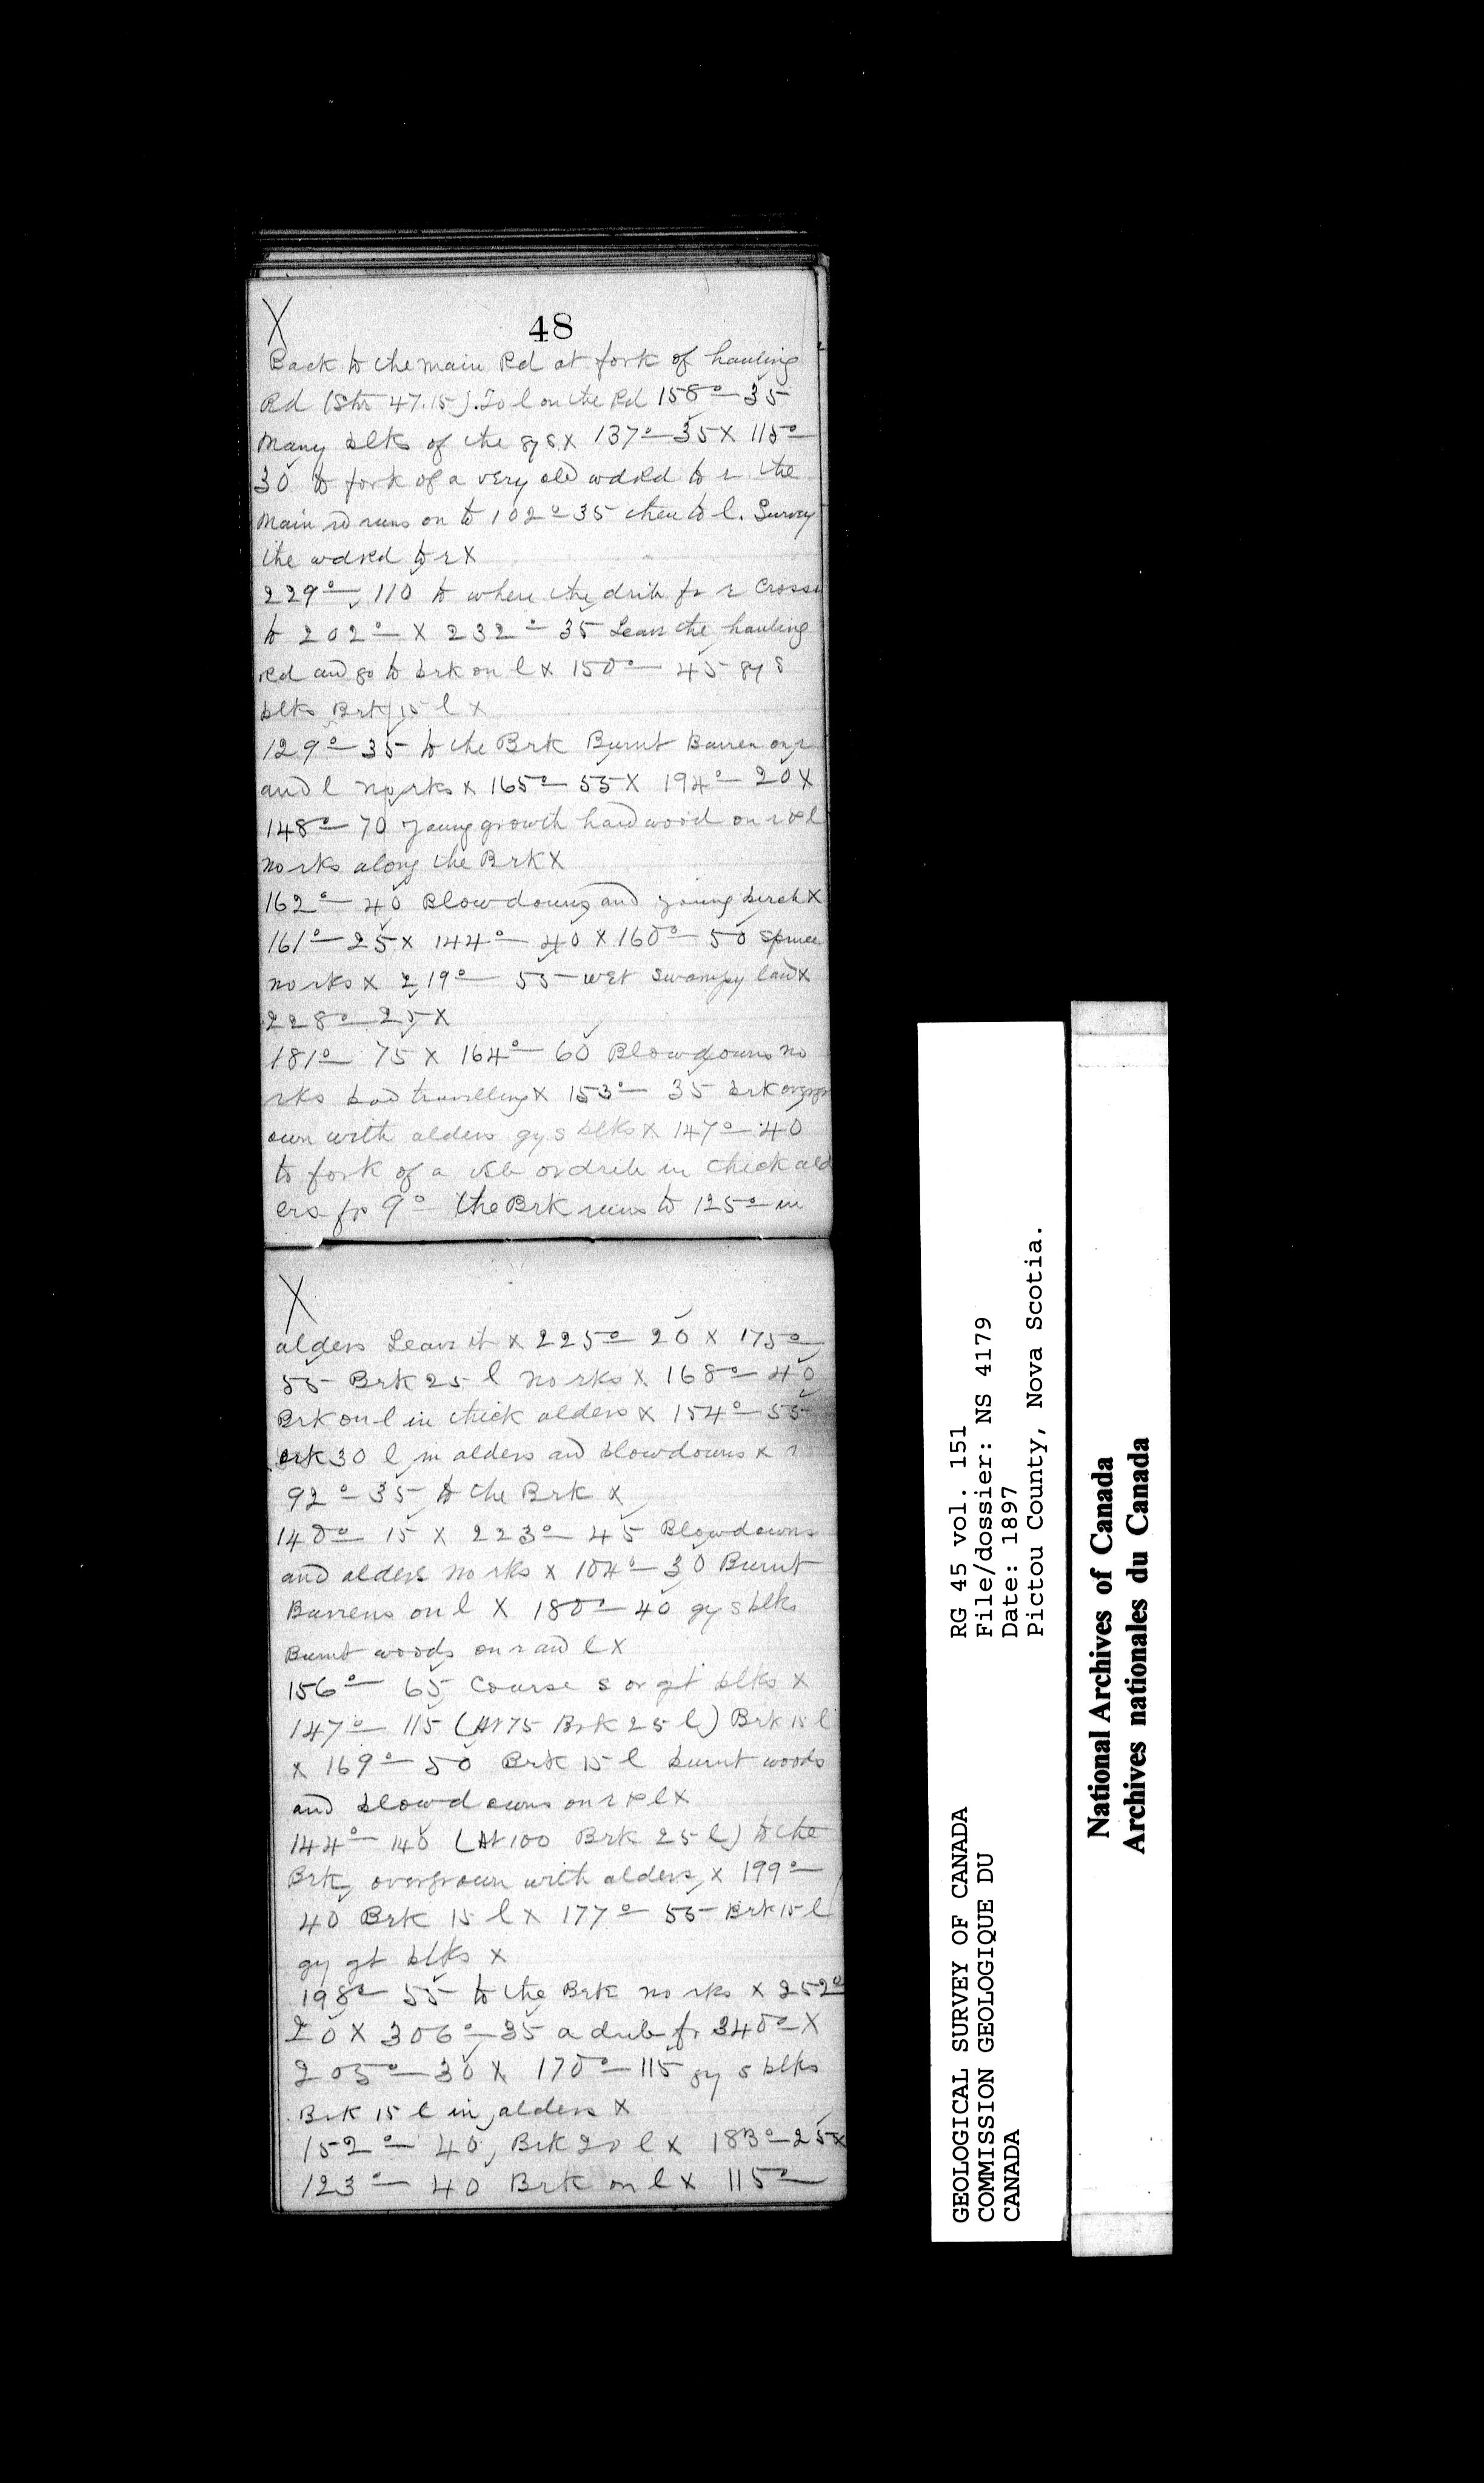 X
48
Back to the main Rd at fork of hauling
Rd (Stn 47.15). To l on the Rd 158° — 35
Many blks of the gy s X 137° — 35 X 115° —
30 to fork of a very old wd Rd to r the
Main rd runs on to 102° — 35 then to l. Survey
the wd Rd to r X
229° — 110 to where the drib fr r crosses
to 202° — X 232° — 35 Leave the hauling
Rd and go to brk on l X 150° — 45 gy s
blks Brk 15 l X
129° — 35 to the Brk Burnt Barren on r
and l no rks X 165° — 55 X 194° — 20 X
148° — 70 young growth hardwood on r & l
no rks along the Brk X
162° — 40 Blowdowns and young birch X
161° — 25 X 144° — 40 X 160° — 50 spruce
no rks X 219° — 55 — wet swampy land X
228° — 25 X
181° — 75 X 164° — 60 Blowdowns no
rks bad travelling X 153° — 35 brk overgr
own with alders gy s blks X 147° — 40
to fork of a or drib in thick ald
ers fr 9° — the Brk runs to 125° — in
X
alders Leave it X 225° — 20 X 175° —
55 — Brk 25 l no rks X 168° — 40
Brk on l in thick alders X 154° — 55
brk 30 l in alders and blowdowns X
92° — 35 to the Brk X
140° — 15 X 223° — 45 Blowdowns
and alders no rks X 104° — 30 Burnt
Barrens on l X 180° — 40 gy s blks
Burnt woods on r and l X
156° — 65 Coarse s or gt blks X
147° — 115 (At 75 Brk 25 l) Brk 15 l
X 169° — 50 Brk 15 l burnt woods
and blowdowns on r & l X
144° — 140 (At 100 Brk 25 l) to the
Brk, overgrown with alders, X 199° —
40 Brk 15 l X 177° — 55 — Brk 15 l
gy gt blks X
198° — 55 to the Brk no rks X 252°
20 X 306° — 35 a drib fr 340° — X
205° — 30 X 170° — 115 gy s blks
Brk 15 l in alders X
152° — 40, Brk 20 l X 183° — 25 X
123° — 40 Brk on l X 115° —
GEOLOGICAL SURVEY OF CANADA
COMMISSION GEOLOGIQUE DU
CANADA
RG 45 vol. 151
File/dossier: NS 4179
Date: 1897
Pictou County, Nova Scotia.
National Archives of Canada
Archives nationales du Canada